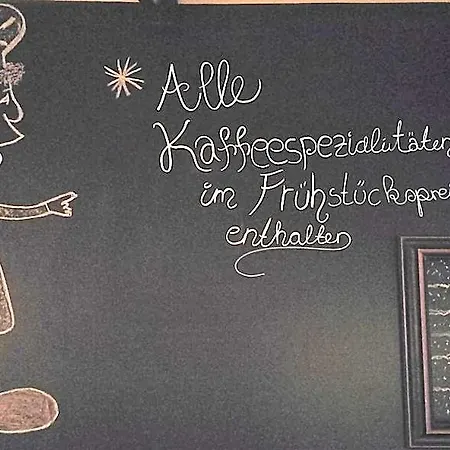 * Alle
Kaffeespezialitäten
im Frühstücksprei
enthalten